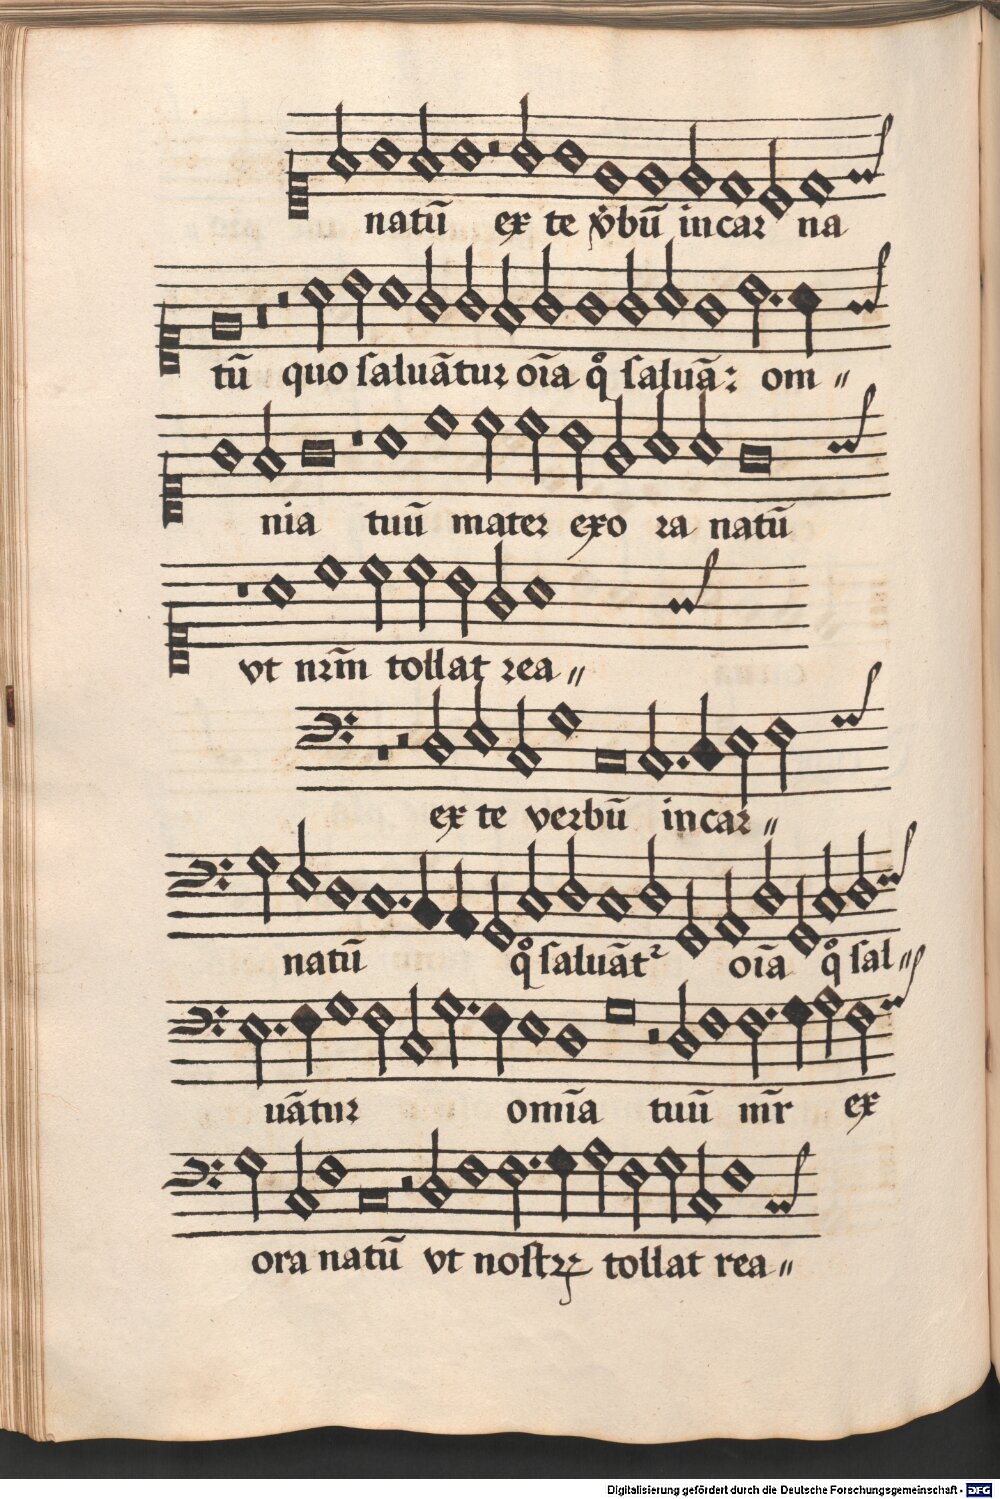 natū ex te v̄bū incar na
tū quo ſaluātur oīa qͦ ſaluā: om〃
nia tuū mater exo ra natū
vt nr̄m tollat rea〃
ex te verbū incar〃
natū qͦ ſaluātᷣ oīa qͦ ſal〃
uātur omīa tuū mr̄ ex
ora natū vt noſtꝝ tollat rea〃
Digitalisierung gefördert durch die Deutsche Forschungsgemeinschaft - DFG